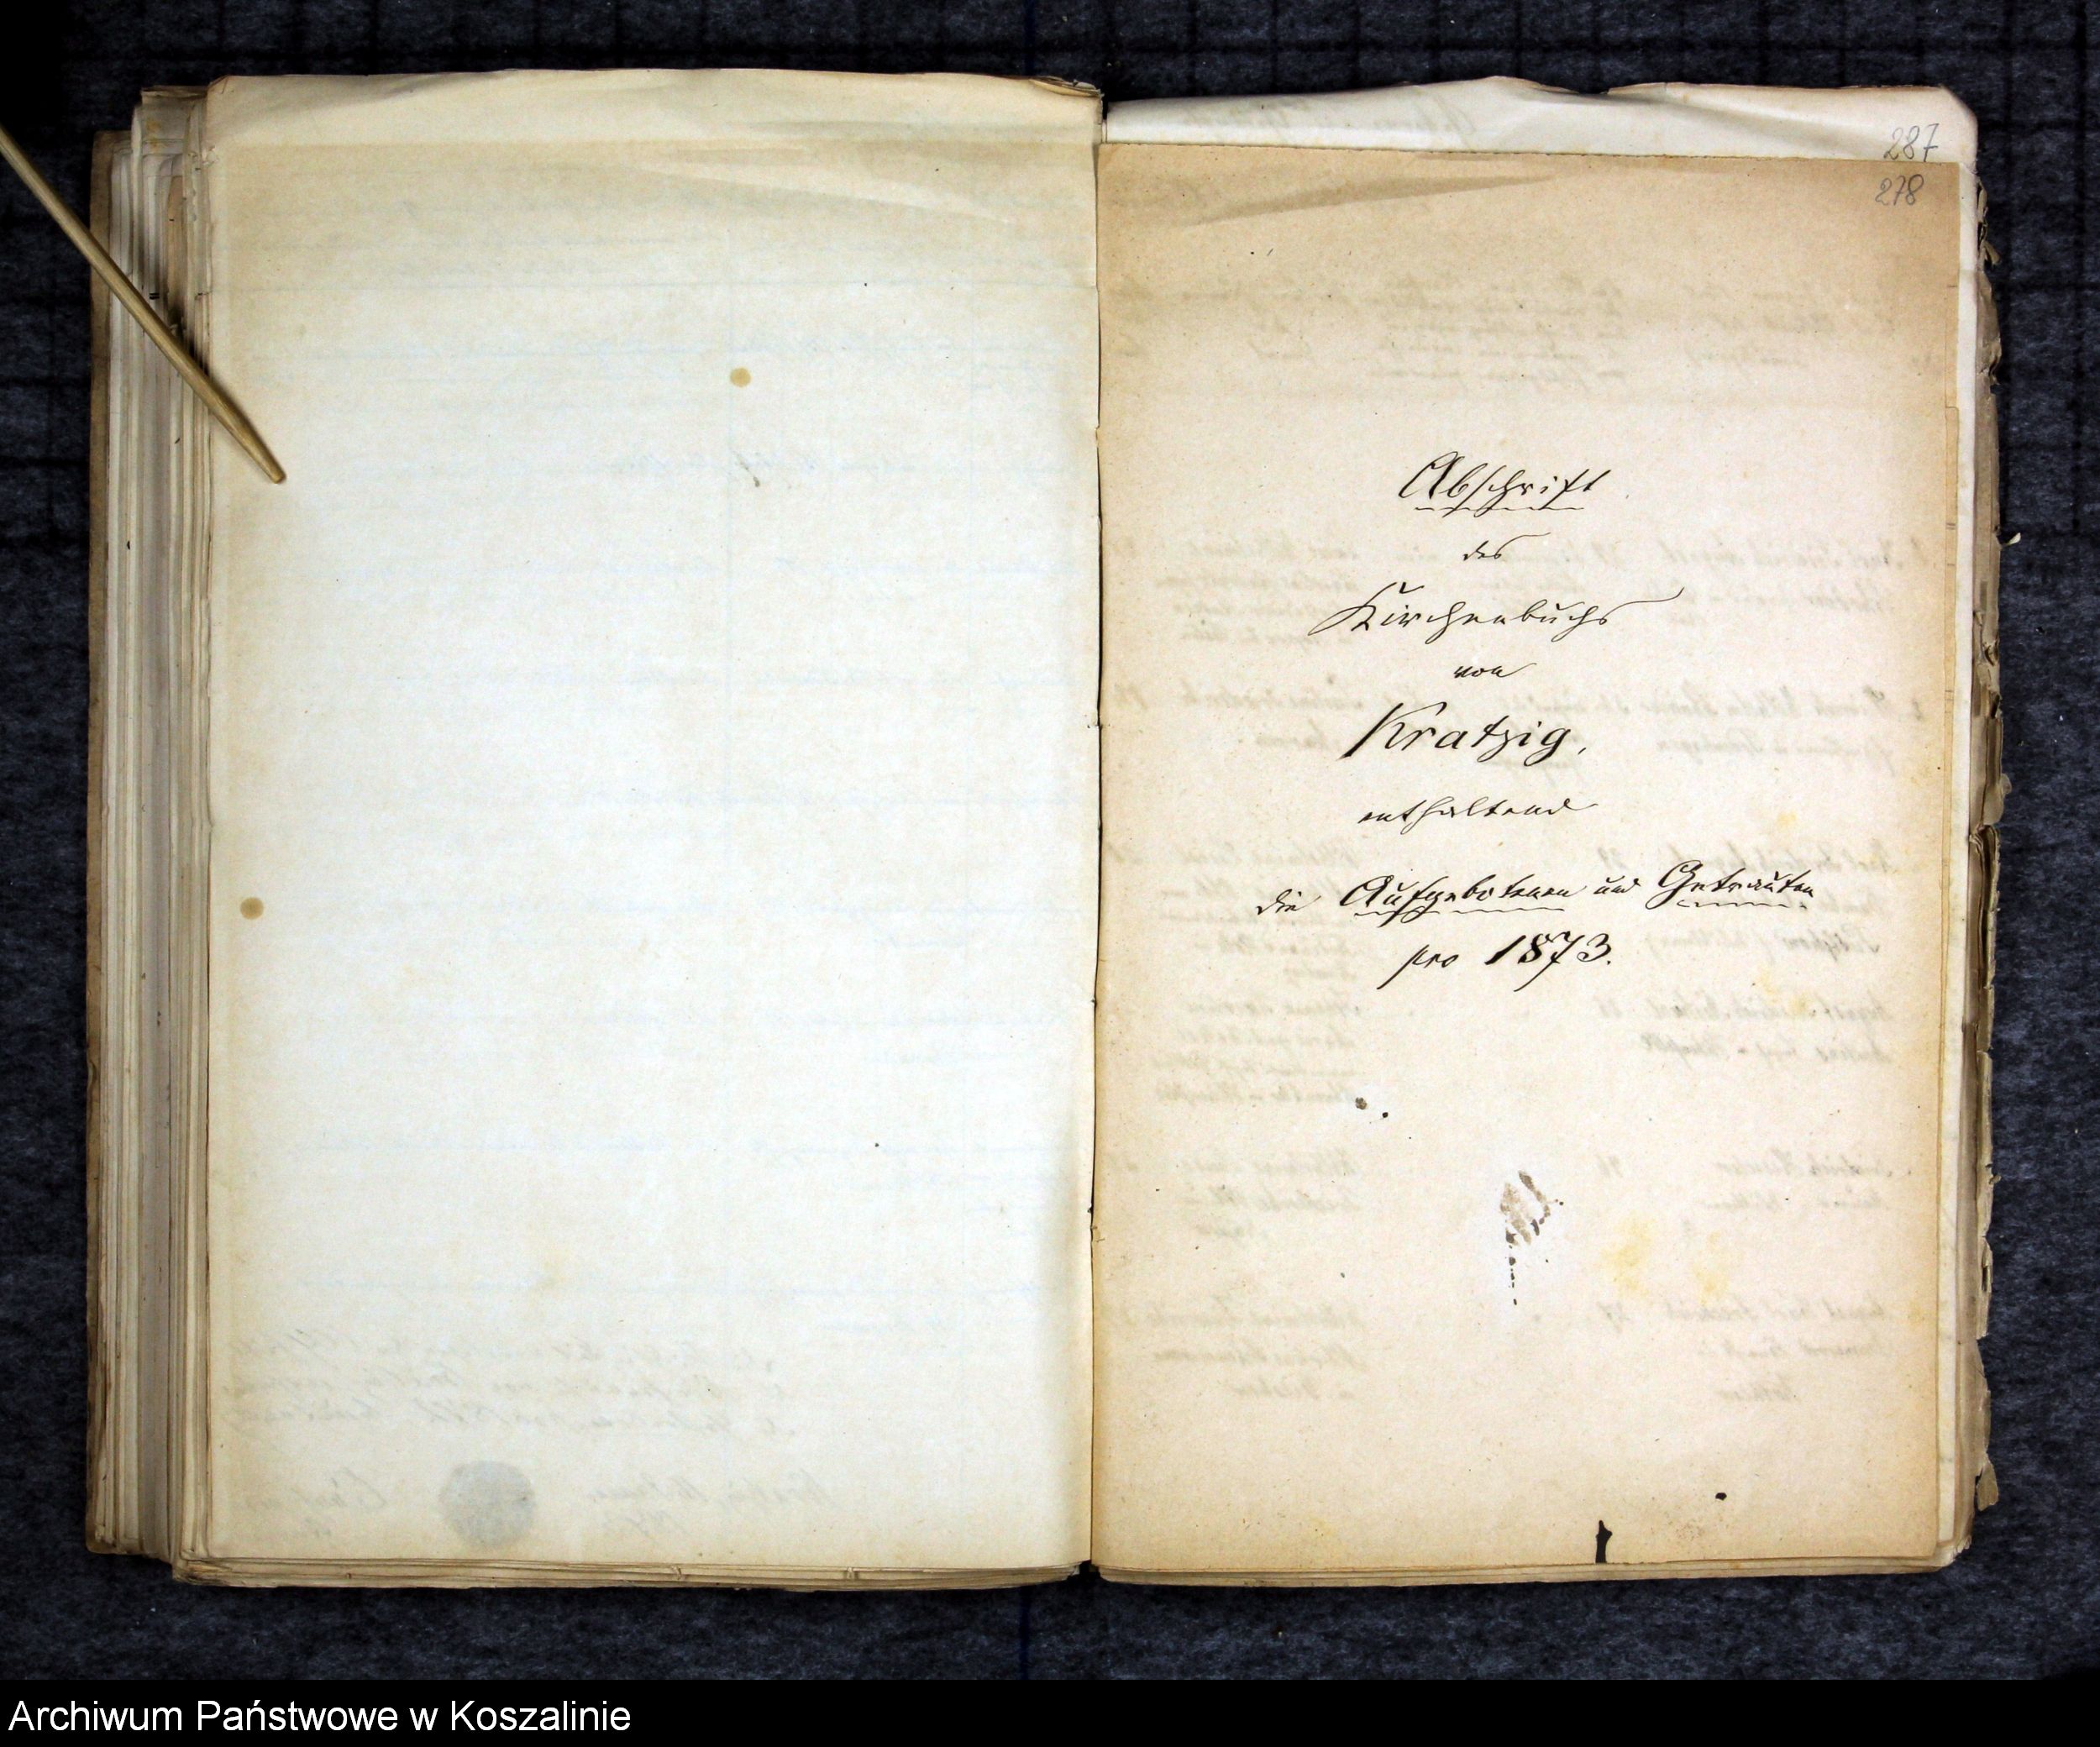 287
278
Abschrift
des
Kirchenbuchs
von
Kratzig,
enthaltend
die Aufgebotenen und Getrauten
pro 1873.
Archiwum Państwowe w Koszalinie